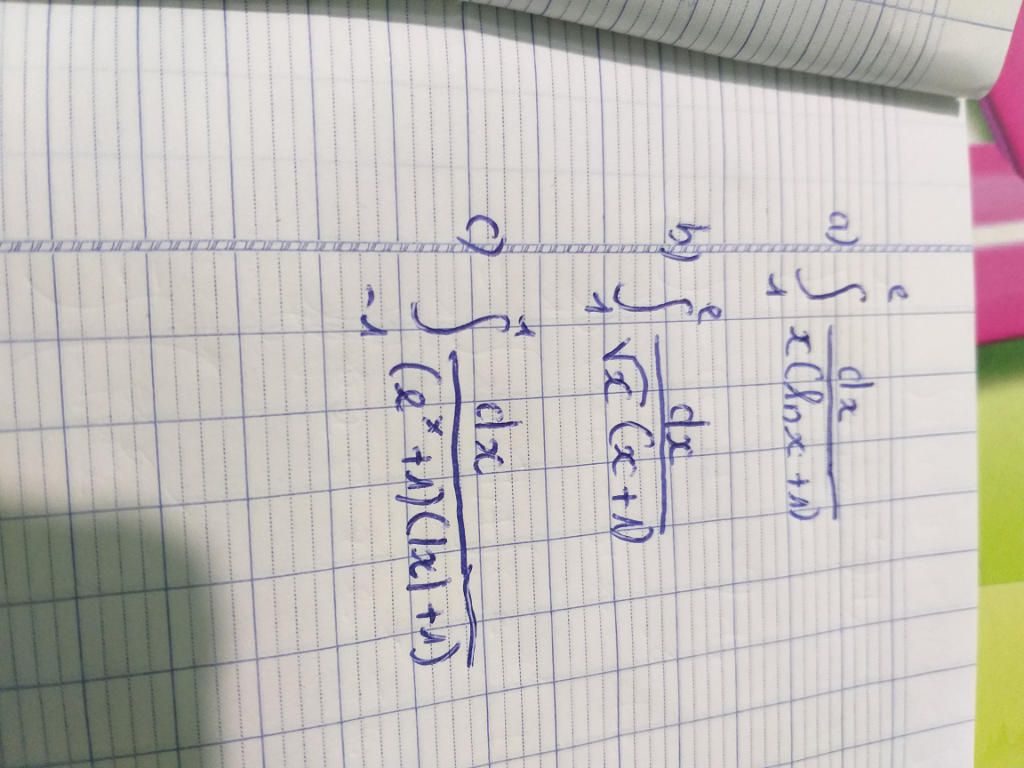 a) ∫₁ᵉ dx / x(ln x + 1)
b) ∫₁ᵉ dx / √x (x + 1)
c) ∫₋₁¹ dx / (eˣ + 1)(|x| + 1)